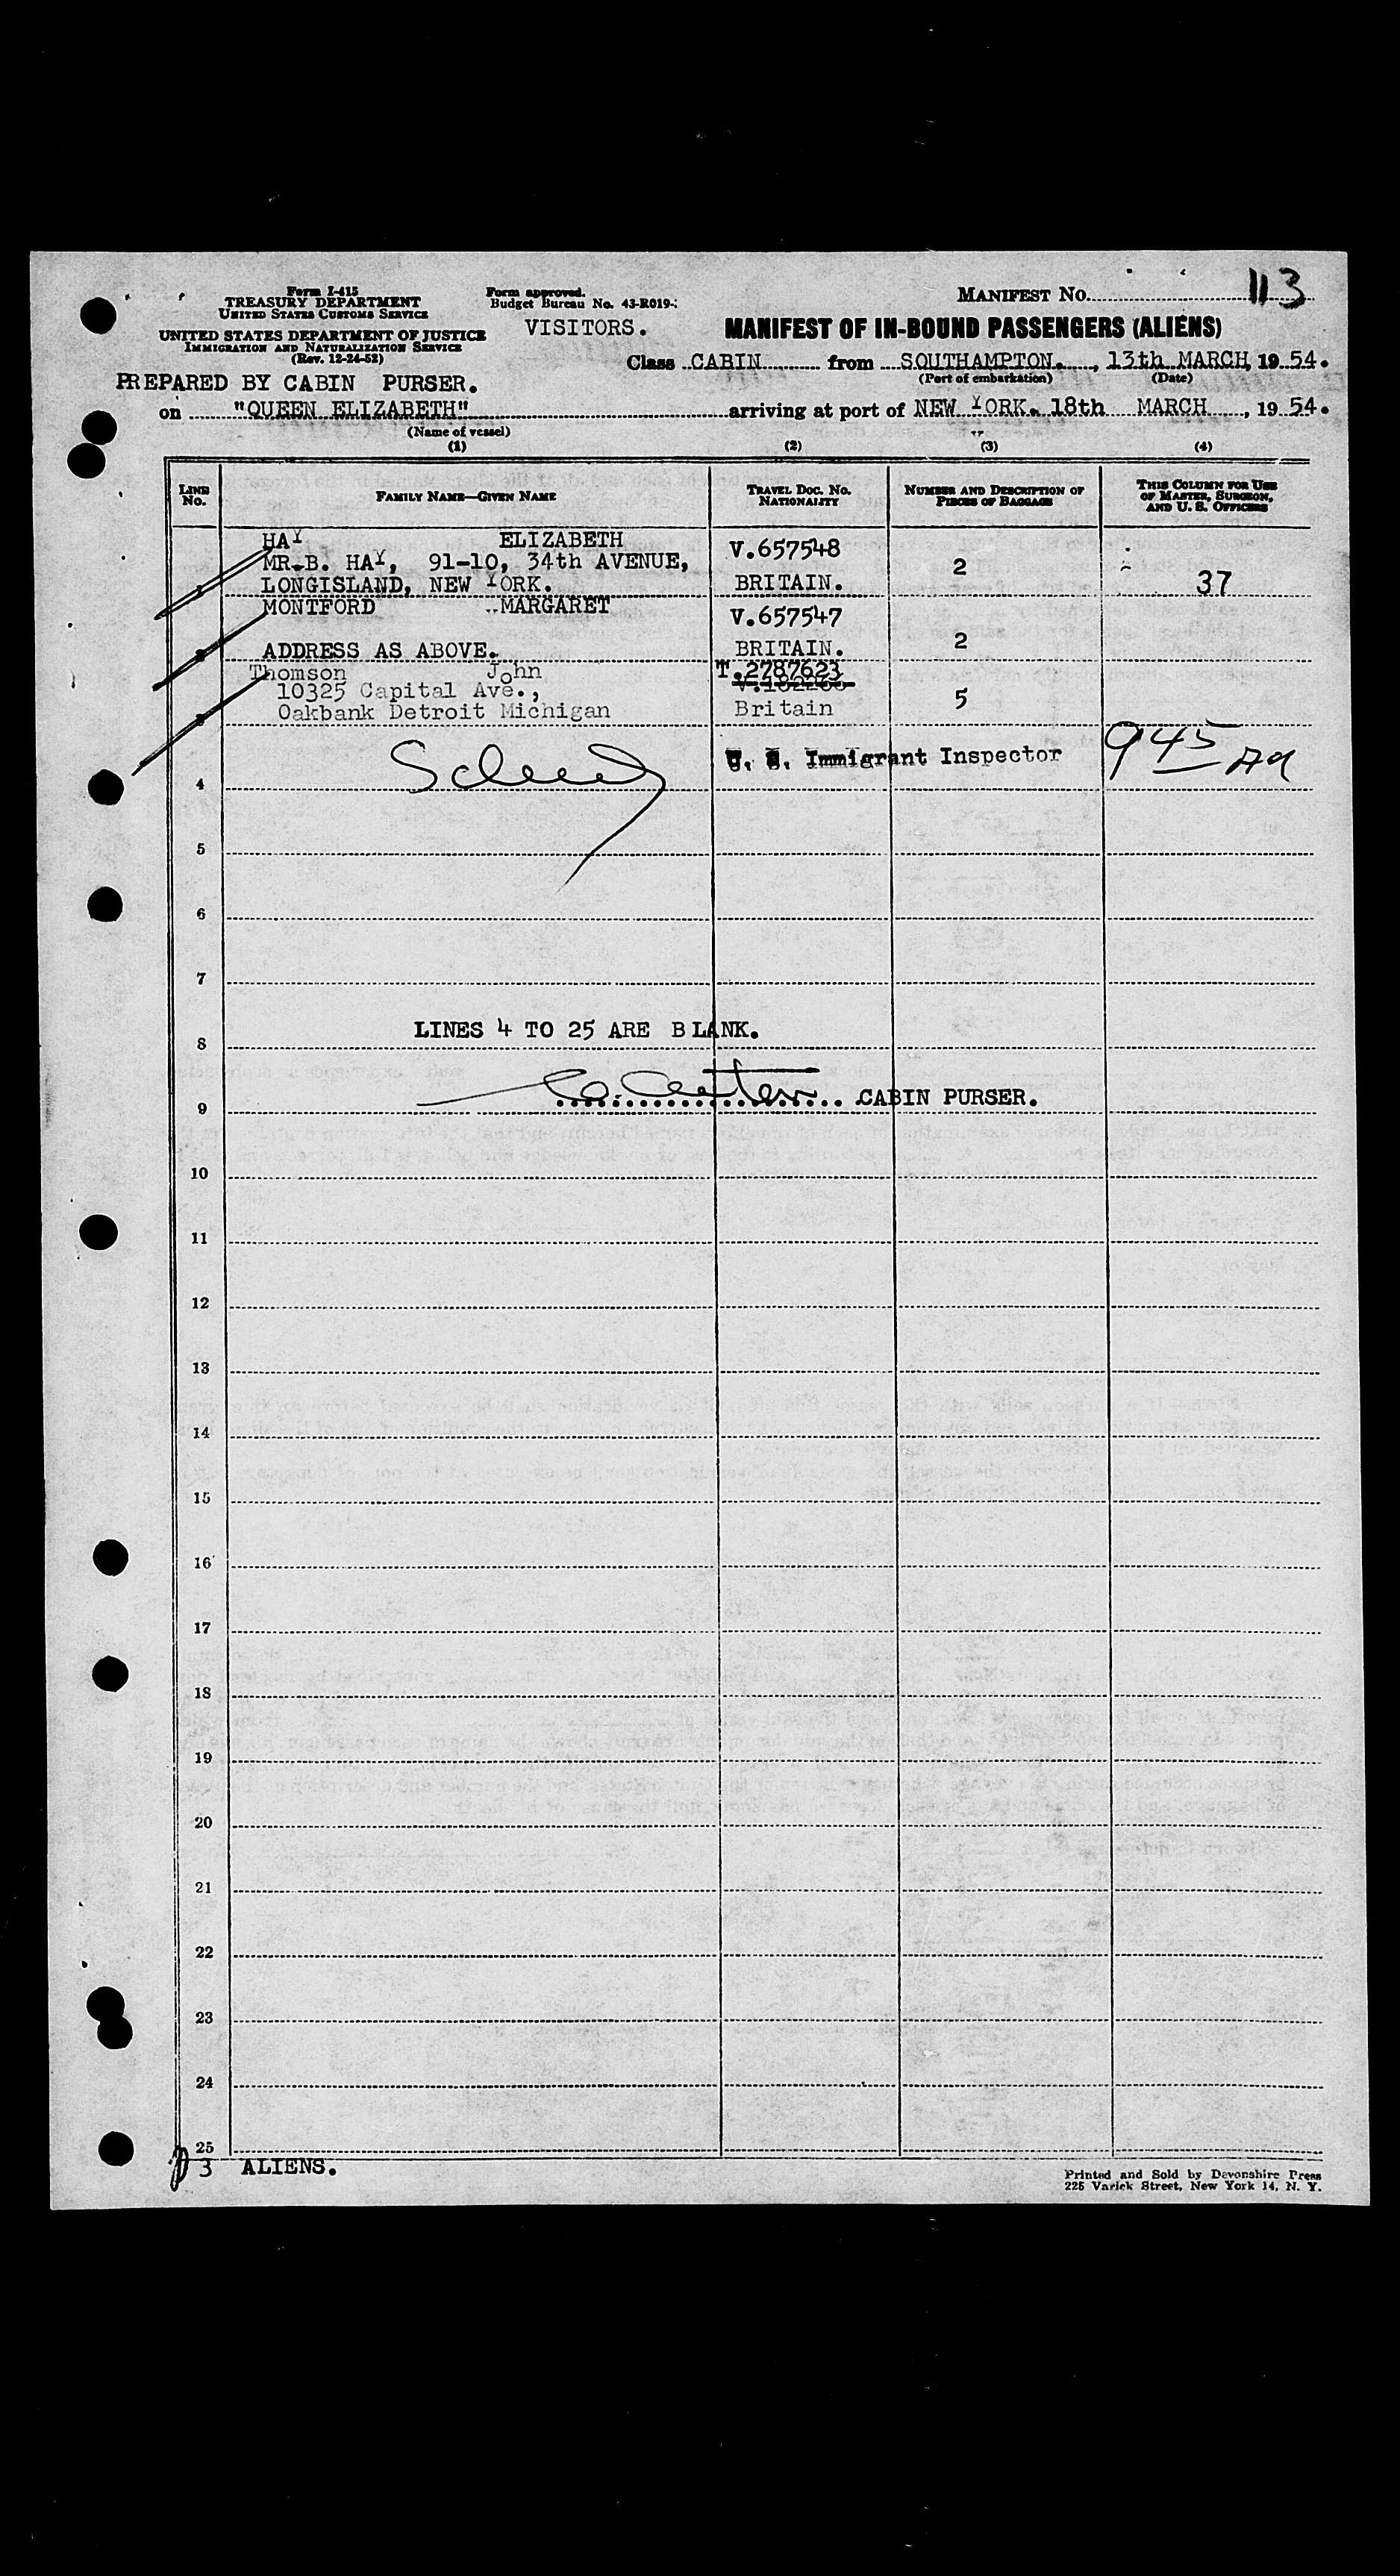 Form I-415
TREASURY DEPARTMENT
UNITED STATES CUSTOMS SERVICE
UNITED STATES DEPARTMENT OF JUSTICE
IMMIGRATION AND NATURALIZATION SERVICE
(Rev. 12-24-52)
Form approved.
Budget Bureau No. 43-R019-
VISITORS.
MANIFEST NO. 113
MANIFEST OF IN-BOUND PASSENGERS (ALIENS)
Class CABIN from SOUTHAMPTON., 13th MARCH, 19 54.
(Port of embarkation) (Date)
PREPARED BY CABIN PURSER.
on "QUEEN ELIZABETH" arriving at port of NEW YORK. 18th MARCH, 19 54.
(Name of vessel)
(1) (2) (3) (4)
LINE NO. FAMILY NAME—GIVEN NAME TRAVEL DOC. NO. NATIONALITY NUMBER AND DESCRIPTION OF PIECES OF BAGGAGE THIS COLUMN FOR USE OF MASTER, SURGEON, AND U. S. OFFICERS
HAY ELIZABETH V.657548
MR.B. HAY, 91-10, 34th AVENUE, 2
LONGISLAND, NEW YORK. BRITAIN. 37
MONTFORD MARGARET V.657547
ADDRESS AS ABOVE. BRITAIN. 2
Thomson John T.2787623
10325 Capital Ave.,
Oakbank Detroit Michigan Britain 5
U. S. Immigrant Inspector 945
4
5
6
7
LINES 4 TO 25 ARE BLANK.
8
CABIN PURSER.
9
10
11
12
13
14
15
16
17
18
19
20
21
22
23
24
25
3 ALIENS.
Printed and Sold by Devonshire Press
225 Varick Street, New York 14, N. Y.